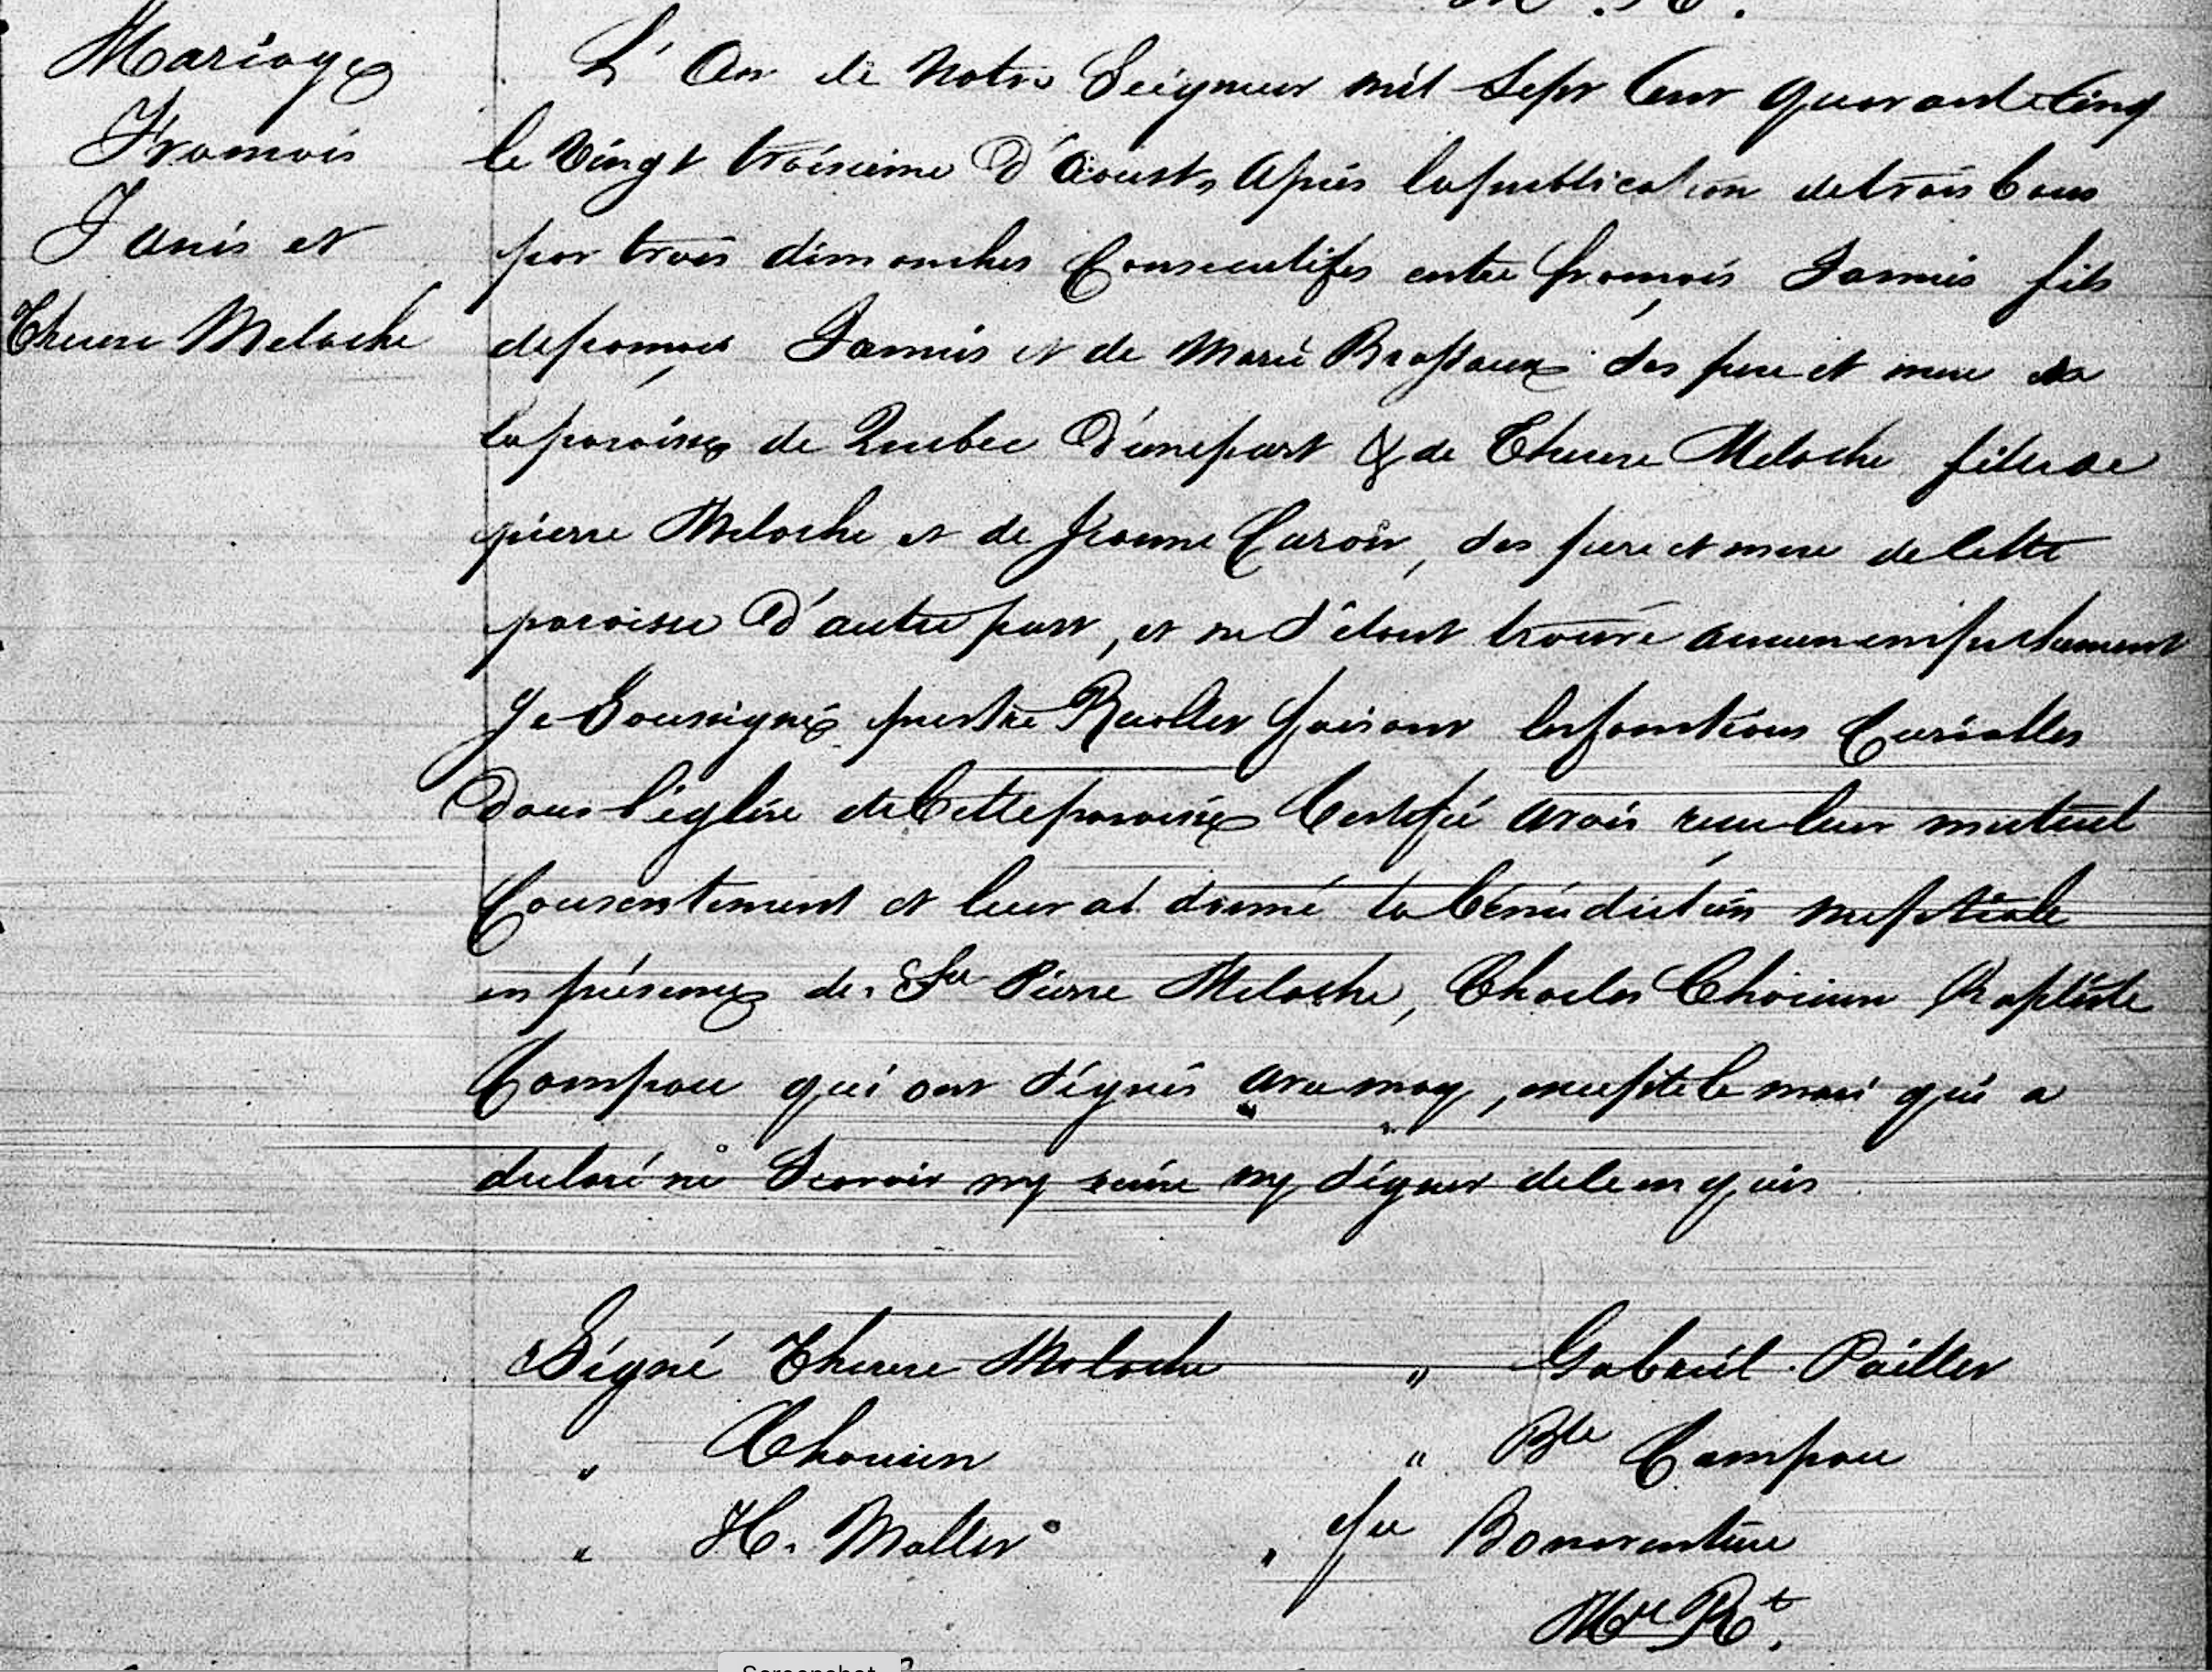 Mariage
François
Janis et
Therese Meloche
L'An de Notre Seigneur mil Sept Cent quarante Cinq
le Vingt troisieme d'Aoust, Après la publication de trois bans
par trois dimanches Consecutifes entre françois Jannis fils
de françois Jannis et de Marie Brassaux Ses pere et mere de
la paroisse de Quebec D'une part & de Therese Meloche fille de
pierre Meloche et de Jeanne Caron, Ses pere et mere de Cette
paroisse D'autre part, et ne S'étant trouvé aucun empechement
Je Soussigné prestre Recollet faisant les fonctions Curialles
Dans l'église de Cette paroisse Certifié avoir recu leur mutuel
Consentement et leur ai donné la bénédiction nuptiale
en présence de Pierre Meloche, Charles Chauvin Baptiste
Campau qui ont Signés avec moy, excepté le mari qui a
declaré ne Scavoir ny ecrire ny Signer de le enquis
Signé Therese Meloche " Gabriel Pailler
" Chauvin " Bte Campau
" H. Mallet " fre Bonaventure
Mre Rt.